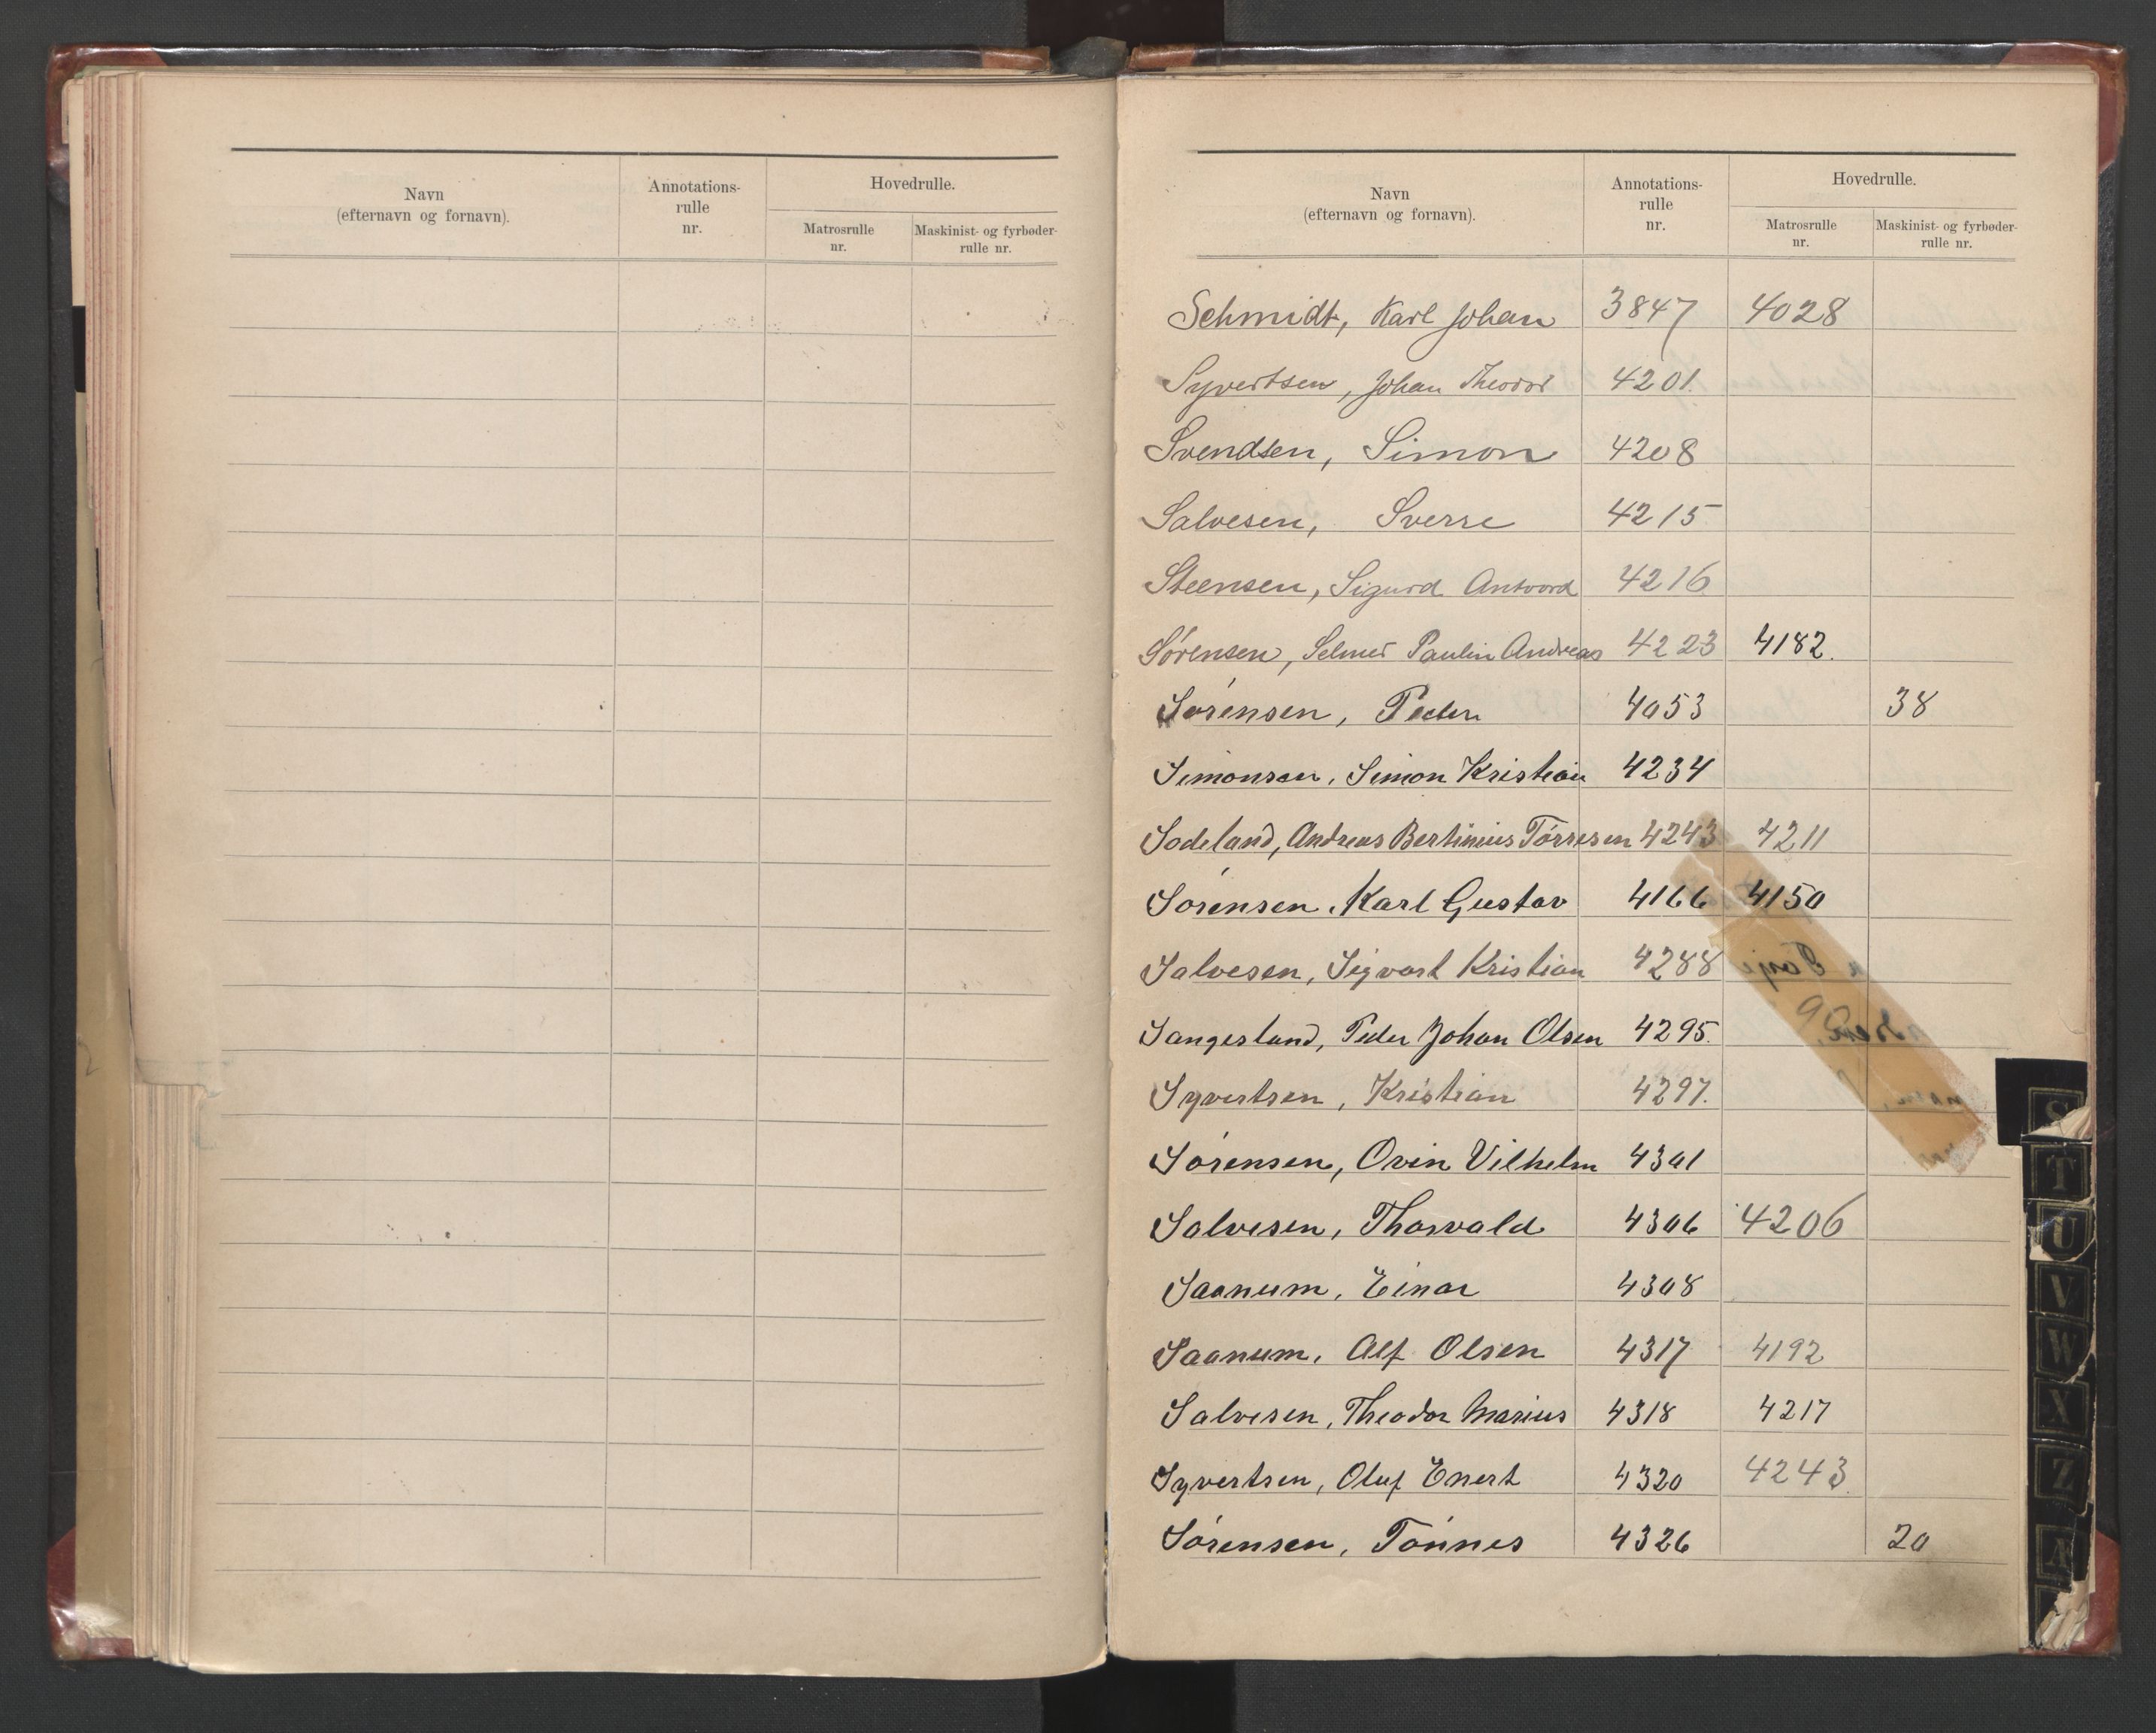 Navn
(efternavn og fornavn).
Annotations-
rulle
nr.
Hovedrulle.
Matrosrulle
nr.
Maskinist- og fyrbøder-
rulle nr.
Navn
(efternavn og fornavn).
Annotations-
rulle
nr.
Hovedrulle.
Matrosrulle
nr.
Maskinist- og fyrbøder-
rulle nr.
Schmidt, Karl Johan 3847 4028
Syvertsen, Johan Theodor 4201.
Svendsen, Simon 4208
Salvesen, Sverre 4215
Steensen, Sigurd Antvord 4216
Sørensen, Selmer Paulin Andreas 4223 4182.
Sørensen, Peder 4053 38
Simonsen, Simon Kristian 4234
Sodeland, Andreas Bertinius Tørresen 4243 4211
Sørensen, Karl Gustav 4166 4150
Salvesen, Sigvart Kristian 4288
Sangesland, Peder Johan Olsen 4295.
Syvertsen, Kristian 4297.
Sørensen, Ovin Vilhelm 4301
Salvesen, Thorvald 4306 4206
Saanum, Einar 4308
Saanum, Alf Olsen 4317 4192
Salvesen, Theodor Marius 4318 4217
Syvertsen, Oluf Enert 4320 4243
Sørensen, Tønnes 4326 20
S
T
U
V
W
X
Z